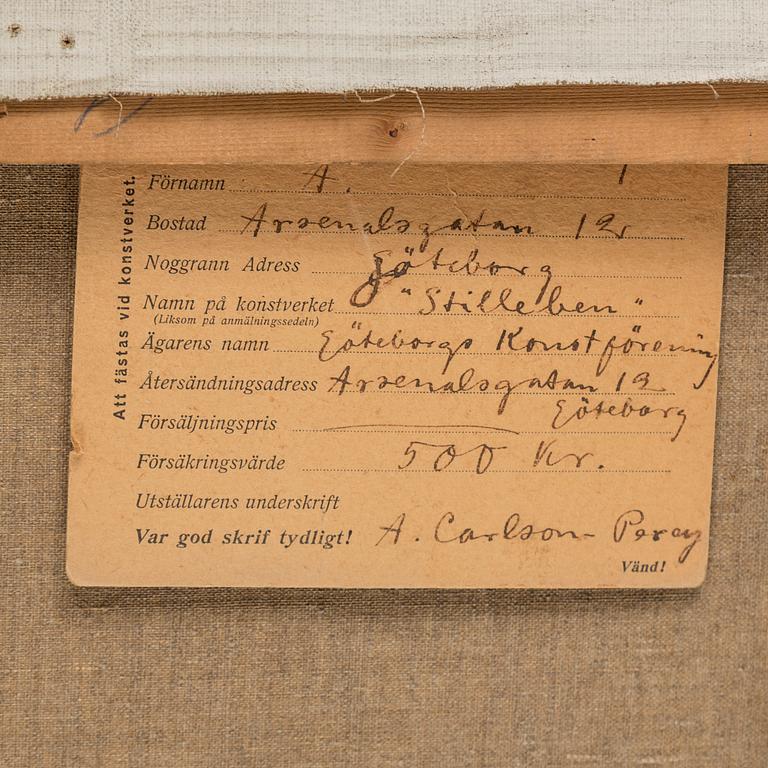 Att fästas vid konstverket.
Förnamn A.
Bostad Arsenalsgatan 12
Noggrann Adress Göteborg
Namn på konstverket "Stilleben"
(Liksom på anmälningssedeln)
Ägarens namn Göteborgs Konstförening
Återsändningsadress Arsenalsgatan 12
Göteborg
Försäljningspris
Försäkringsvärde 500 Kr.
Utställarens underskrift
Var god skrif tydligt! A. Carlson-Percy
Vänd!